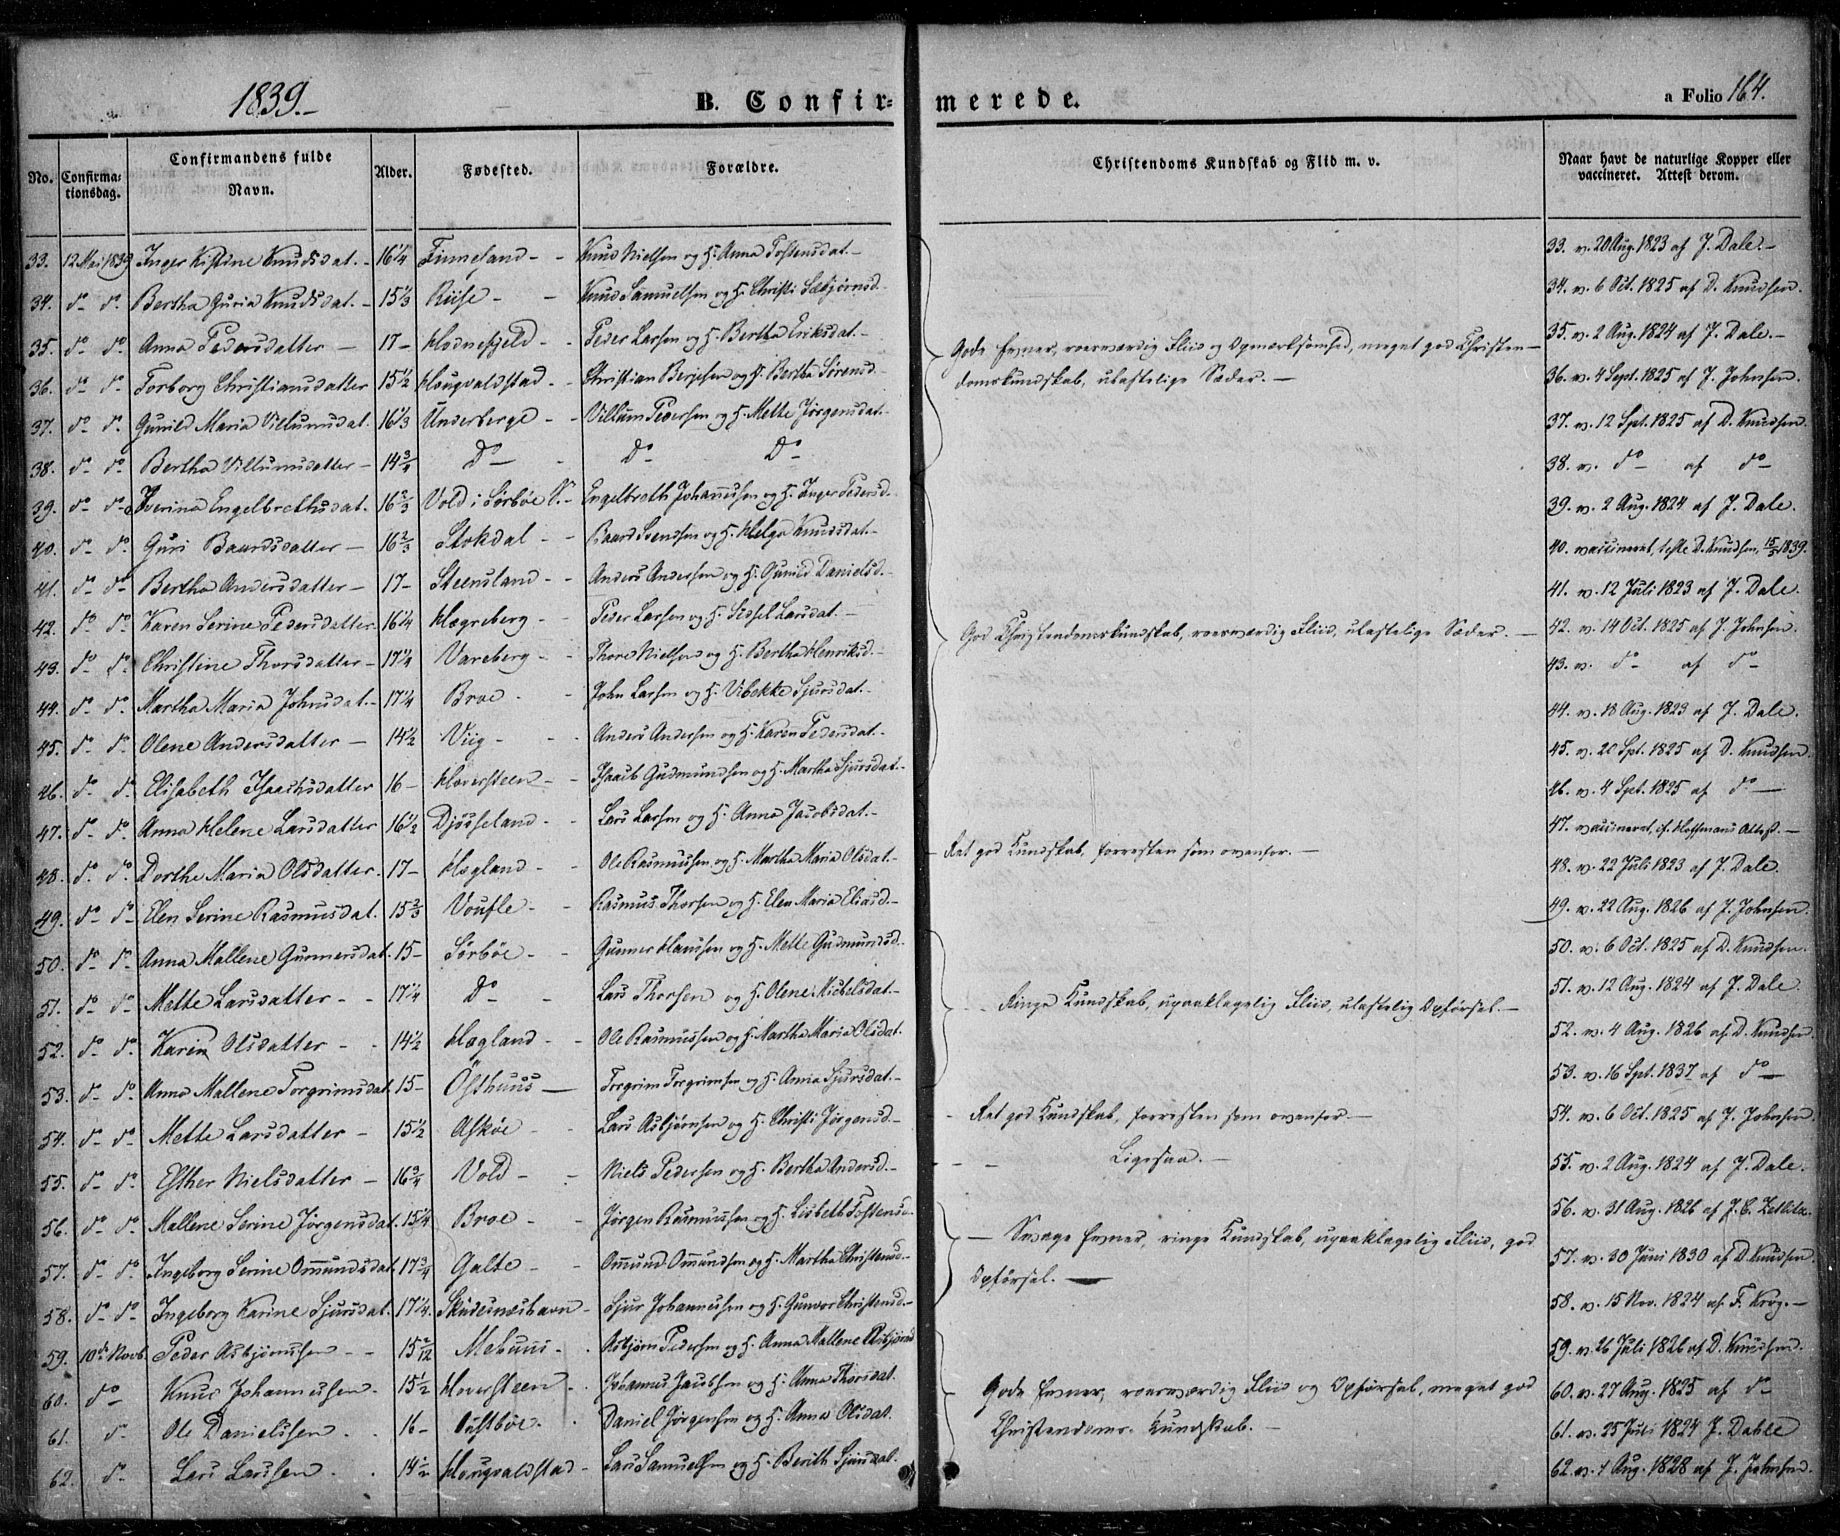 1839.- B. Confir= merede. a Folio 164.
No. Confirma-tionsdag. Confirmandens fulde Navn. Alder. Fødested. Forældre. Christendoms Kundskab og Flid m. v. Naar havt de naturlige Kopper eller vaccineret. Attest derom.
33. 12 Mai 1839 Inger Kistine Knudsdat. - 16 1/4 Finneland - - Knud Nielsen og H. Anna Tostensdat. - 33. v. 20 Aug. 1823 af J. Dale. -
34. do do Bertha Guria Knudsdat. - 15 1/3 Riise - - Knud Samuelsen og H. Christi Sæbjørnsd. 34. v. 6 Oct. 1825 af D. Knudsen.
35. do do Anna Pedersdatter - 17 - Hodnefjeld - - Peder Larsen og H. Bertha Eriksdat. - 35. v. 2 Aug. 1824 af J. Dale. -
Gode Evner, roesværdig Fliid og Opmærksomhed, meget god Christen-
domskundskab, ulastelige Sæder. -
36. do do Torborg Christiansdatter 15 1/2 Haugvaldstad - - Christian Berjesen og H. Bertha Sørensd. 36. v. 4 Sept. 1825 af J. Johnsen.
37. do do Gunild Maria Villumsdat. 16 1/3 Underberge - - Villum Pedersen og H. Mette Jørgensdat. - 37. v. 12 Sept. 1825 af D. Knudsen.
38. do do Bertha Villumsdatter - 14 3/4 Do - - Do Do 38. v. do af do -
39. do do Iverina Engelbrethsdat. 16 2/3 Vold i Sørbøe S. - Engelbreth Johannesen og H. Inger Pedersd. 39. v. 2 Aug. 1824 af J. Dale.
40. do do Guri Baardsdatter - 16 2/3 Stokdal - - Baard Svendsen og H. Helga Knudsdat. - 40. vaccineret, teste D. Knudsen, 15/5 1839.
41. do do Bertha Andersdatter - 17 - Steensland - - Anders Andersen og H. Gunild Danielsd. - 41. v. 12 Juli 1823 af J. Dale.
42. do do Karen Serine Pedersdatter 16 1/4 Hægreberg - - Peder Larsen og H. Sissel Larsdat. - 42. v. 14 Oct. 1825 af J. Johnsen.
God Christendomskundskab, roesværdig Fliid, ulastelige Sæder. -
43. do do Christine Thorsdatter - 17 1/4 Vareberg - - Thore Nielsen og H. Bertha Henriksd. - 43. v. do af do -
44. do do Martha Maria Johnsdat. - 17 1/4 Broe - - John Larsen og H. Vibekke Sjursdat. - 44. v. 18 Aug. 1823 af J. Dale.
45. do do Olene Andersdatter - 14 1/2 Viig - - Anders Andersen og H. Karen Pedersdat. - 45. v. 20 Spt. 1825 af D. Knudsen.
46. do do Elisabeth Isaachsdatter 16 - Hoversteen - - Isaach Gudmundsen og H. Martha Sjursdat. - 46. v. 4 Sept. 1825 af do -
47. do do Anna Helene Larsdatter 16 1/2 Djøsseland - - Lars Larsen og H. Anna Jacobsdat. - 47. vaccineret, cf. Hoffmans Attest. -
Ret god Kundskab, forresten som ovenfor. -
48. do do Dorthe Maria Olsdatter - 17 - Hægland - - Ole Rasmussen og H. Martha Maria Olsdat. - 48. v. 22 Juli 1823 af J. Dale.
49. do do Elen Serine Rasmusdat. 15 2/3 Voufle - - Rasmus Thorsen og H. Elen Maria Eliasd. - 49. v. 22 Aug. 1826 af J. Johnsen.
50. do do Anna Mallene Gunnersdat. 15 - Sørbøe - - Gunner Hansen og H. Mette Gudmundsd. 50. v. 6 Oct. 1825 af D. Knudsen.
51. do do Mette Larsdatter - - 17 1/4 Do - - Lars Thorsen og H. Olene Michelsdat. - 51. v. 12 Aug. 1824 af J. Dale
Ringe Kundskab, upaaklagelig Fliid, ulastelig Opførsel. -
52. do do Karin Olsdatter - - 14 1/2 Hægland - - Ole Rasmussen og H. Martha Maria Olsdat. 52. v. 4 Aug. 1826 af D. Knudsen
53. do do Anna Mallene Torgrimsdat. 15 - Østhuus - Torgrim Torgrimsen og H. Anna Sjursdat. - 53. v. 16 Spt. 1837 af do -
54. do do Mette Larsdatter - 15 1/2 Askøe - Lars Asbjørnsen og H. Christi Jørgensd. - Ret god Kundskab, forresten som ovenfor. - 54. v. 6 Oct. 1825 af J. Johnsen
55. do do Esther Nielsdatter - 16 3/4 Vold - - Niels Pedersen og H. Bertha Andersd. - Ligesaa. - 55. v. 2 Aug. 1824 af J. Dale.
56. do do Mallene Serine Jørgensdat. 15 1/4 Broe - - Jørgen Rasmussen og H. Lisbeth Tostensd. 56. v. 31 Aug. 1826 af J. C. Zetlitz.
Svage Evner, ringe Kundskab, upaaklagelig Fliid, god
Opførsel. -
57. do do Ingeborg Serine Ommundsdat. 17 3/4 Galte - - Ommund Ommundsen og H. Martha Christensd. 57. v. 30 Juni 1830 af D. Knudsen
58. do do Ingeborg Karine Sjursdat. 17 1/4 Skudesnæshavn - Sjur Johannesen og H. Gunvor Christensd. - 58. v. 15 Nov. 1824 af F. Krog. -
59. 10de Novb. Peder Asbjørnsen - - 15 2/12 Mehuus - Asbjørn Pedersen og H. Anna Mallene Asbjørnsd. 59. v. 26 Juli 1826 af D. Knudsen.
60. do Knud Johannesen - 15 1/2 Hoversteen - Johannes Jacobsen og H. Anna Thorsdat. 60. v. 27 Aug. 1825 af do -
Gode Evner, roesværdig Fliid og Opførsel, meget god
Christendoms Kundskab. -
61. do Ole Danielsen . . 16 - Østbøe . . Daniel Jørgensen og H. Anna Olsdat. 61. v. 25 Juli 1824 J. Dahle
62. do Lars Larsen . . 14 1/2 Hougvaldstad - Lars Samuelsen og H. Berith Sjursdat. 62. v. 1 Aug. 1828 af J. Johnsen.